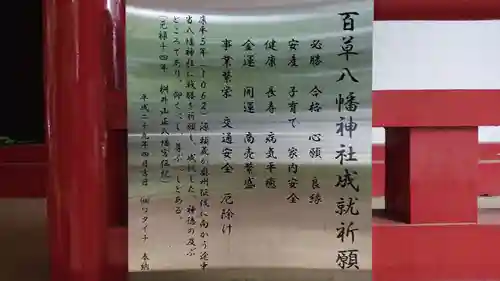 百草八幡神社成就祈願
必勝 合格 心願 良縁
安産 子育て 家内安全
健康 長寿 病気平癒
金運 開運 商売繁盛
事業繁栄 交通安全 厄除け
康平5年(1062)源頼義が奥州征伐に向かう途中
当八幡神社に戦勝を祈願し、成就した 神徳の及ぶ
ところであり、仰ぐべし、尊ぶべしとある。
(元禄十四年 桝井山正八幡宮伝紀)
平成二十九年四月吉日 奉納